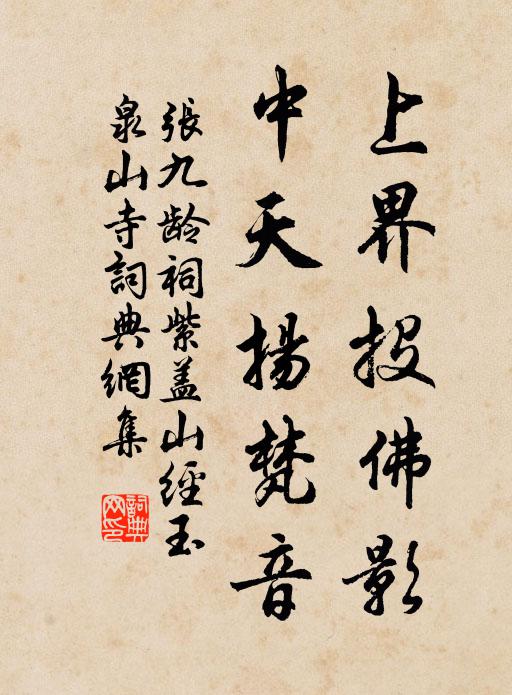 上界投佛影
中天揚梵音
張九齡祠紫蓋山經玉
泉山寺詞典網集
詞典網印